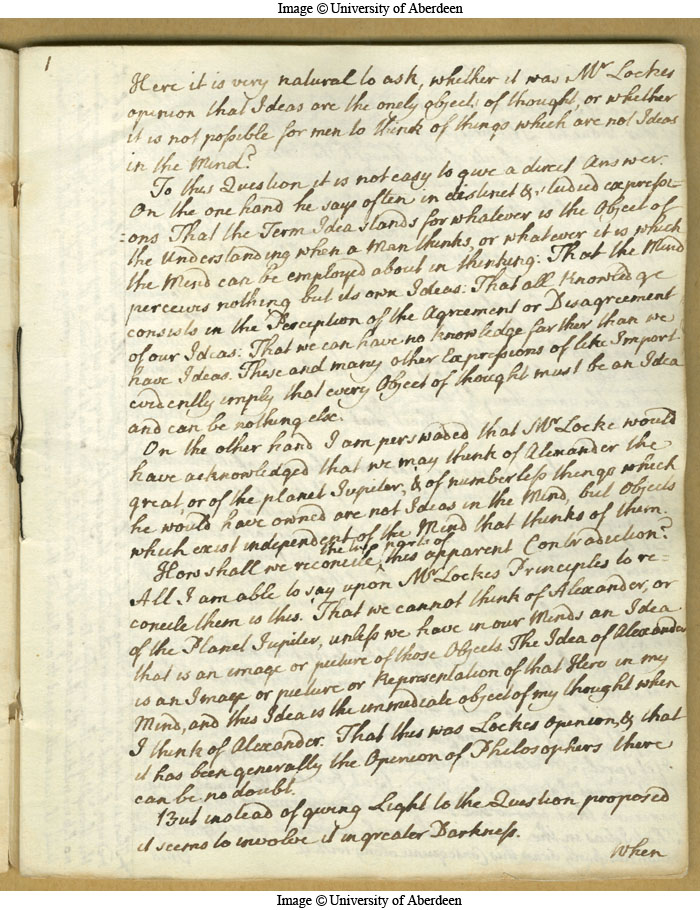 Image © University of Aberdeen
1
Here it is very natural to ask, whether it was Mr Lockes
opinion that Ideas are the onely objects of thought, or whether
it is not possible for men to think of things which are not Ideas
in the Mind?
To this Question it is not easy to give a direct Answer.
On the one hand he says often in distinct & studied expressi-
:ons That the Term Idea stands for whatever is the Object of
the Understanding when a Man thinks, or whatever it is which
the Mind can be employed about in thinking: That the Mind
perceives nothing but its own Ideas: That all Knowledge
consists in the Perception of the Agreement or Disagreement
of our Ideas: That we can have no knowledge farther than we
have Ideas. These and many other Expressions of like Import
evidently imply that every Object of thought must be an Idea
and can be nothing else.
On the other hand I am perswaded that Mr Locke would
have acknowledged that we may think of Alexander the
great, or of the planet Jupiter, & of numberless things which
he would have owned are not Ideas in the Mind, but Objects
which exist independent of the Mind that thinks of them.
How shall we reconcile the two parts of this apparent Contradiction?
All I am able to say upon Mr Lockes Principles to re=
concile them is this. That we cannot think of Alexander, or
of the Planet Jupiter, unless we have in our Minds an Idea
that is an image or picture of those Objects The Idea of Alexander
is an Image or picture or Representation of that Hero in my
Mind, and this Idea is the immediate object of my thought when
I think of Alexander. That this was Lockes opinion, & that
it has been generally the Opinion of Philosophers there
can be no doubt.
But instead of giving Light to the Question proposed
it seems to involve it in greater Darkness.
When
Image © University of Aberdeen